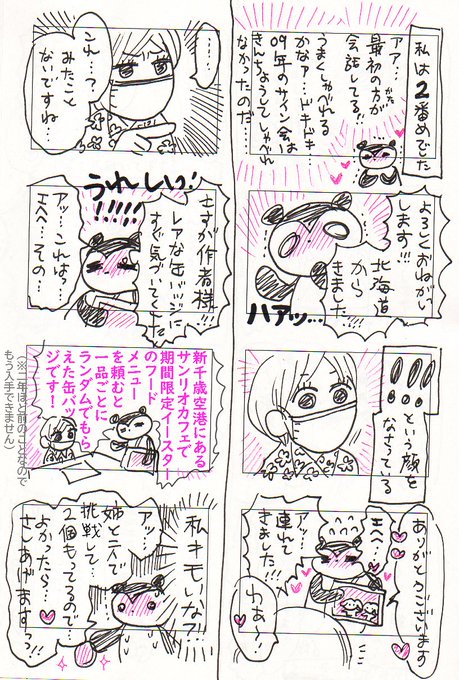 私は2番めでした
アァ…
最初の方が
会話してる!!
うまくしゃべれる
かなァ…ドキドキ
09年のサイン会は
きんちょうしてしゃべれ
なかったのだ…
よろしくおねがい
します!!!
北海道
から
きました!
ハアッ…
!!!…
という顔を
なさっている
ありがとうございます
エヘ…
アッ…
連れて
きました!!!
わぁ〜!
………
これ…?
みたこと
ないですね…
うれしい!
!!!!!
さすが作者様!!!
レアな缶バッジに
すぐ気づいてくれた
アッ…これはっ
エヘヘ…その…
新千歳空港にある
サンリオカフェで
期間限定イースタ
のフード
メニュー
を頼むと
一品ごとに
ランダムでもら
えた缶バッ
ジです!
(※二年ほど前のことなので
もう入手できません)
私キモいな?!
アッ…
姉と二人で
挑戦して…
2個もってるので…
よかったら…
さしあげますっ!!